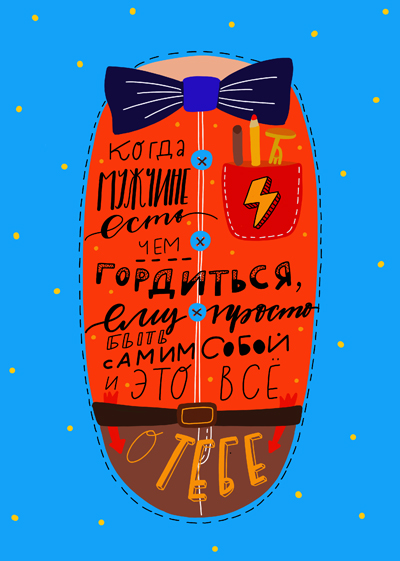 Когда
МУЖЧИНЕ
есть
ЧЕМ
ГОРДИТЬСЯ,
ему просто
БЫТЬ
САМИМ СОБОЙ
И ЭТО ВСЁ
О ТЕБЕ